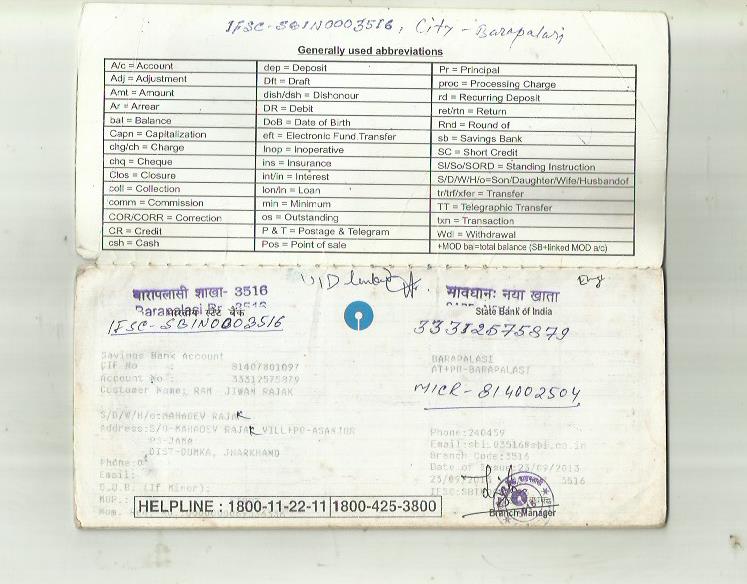 IFSC-SBIN0003516, City - Barapalasi
Generally used abbreviations
A/c = Account
Adj = Adjustment
Amt = Amount
Ar = Arrear
bal = Balance
Capn = Capitalization
chg/ch = Charge
chq = Cheque
Clos = Closure
coll = Collection
comm = Commission
COR/CORR = Correction
CR = Credit
csh = Cash
dep = Deposit
Dft = Draft
dish/dsh = Dishonour
DR = Debit
DoB = Date of Birth
eft = Electronic Fund Transfer
Inop = Inoperative
ins = Insurance
int/in = Interest
lon/ln = Loan
min = Minimum
os = Outstanding
P & T = Postage & Telegram
Pos = Point of sale
Pr = Principal
proc = Processing Charge
rd = Recurring Deposit
ret/rtn = Return
Rnd = Round of
sb = Savings Bank
SC = Short Credit
SI/So/SORD = Standing Instruction
S/D/W/H/o=Son/Daughter/Wife/Husbandof
tr/trf/xfer = Transfer
TT = Telegraphic Transfer
txn = Transaction
Wdl = Withdrawal
+MOD bal=total balance (SB+linked MOD a/c)
UID linked
बारापलासी शाखा- 3516
Barapalasi Br. 3516
भारतीय स्टेट बैंक
IFSC-SBIN0003516
सावधान: नया खाता
State Bank of India
33312575879
Savings Bank Account
CIF No : 81407801097
Account No : 33312575879
Customer Name: RAM JIWAN RAJAK
S/D/W/H/o:MAHADEV RAJAK
Address:S/O-MAHADEV RAJAK VILL+PO-ASANJOR
PS-JAMA
DIST-DUMKA, JHARKHAND
Phone:0
Email:
D.O.B. (If Minor):
MOP.:
BARAPALASI
AT+PO-BARAPALASI
MICR-814002504
Phone:240459
Email:sbi.03516@sbi.co.in
Branch Code:3516
Date of Issue:23/09/2013
23/09/2013 3516
HELPLINE : 1800-11-22-11 1800-425-3800
Branch Manager